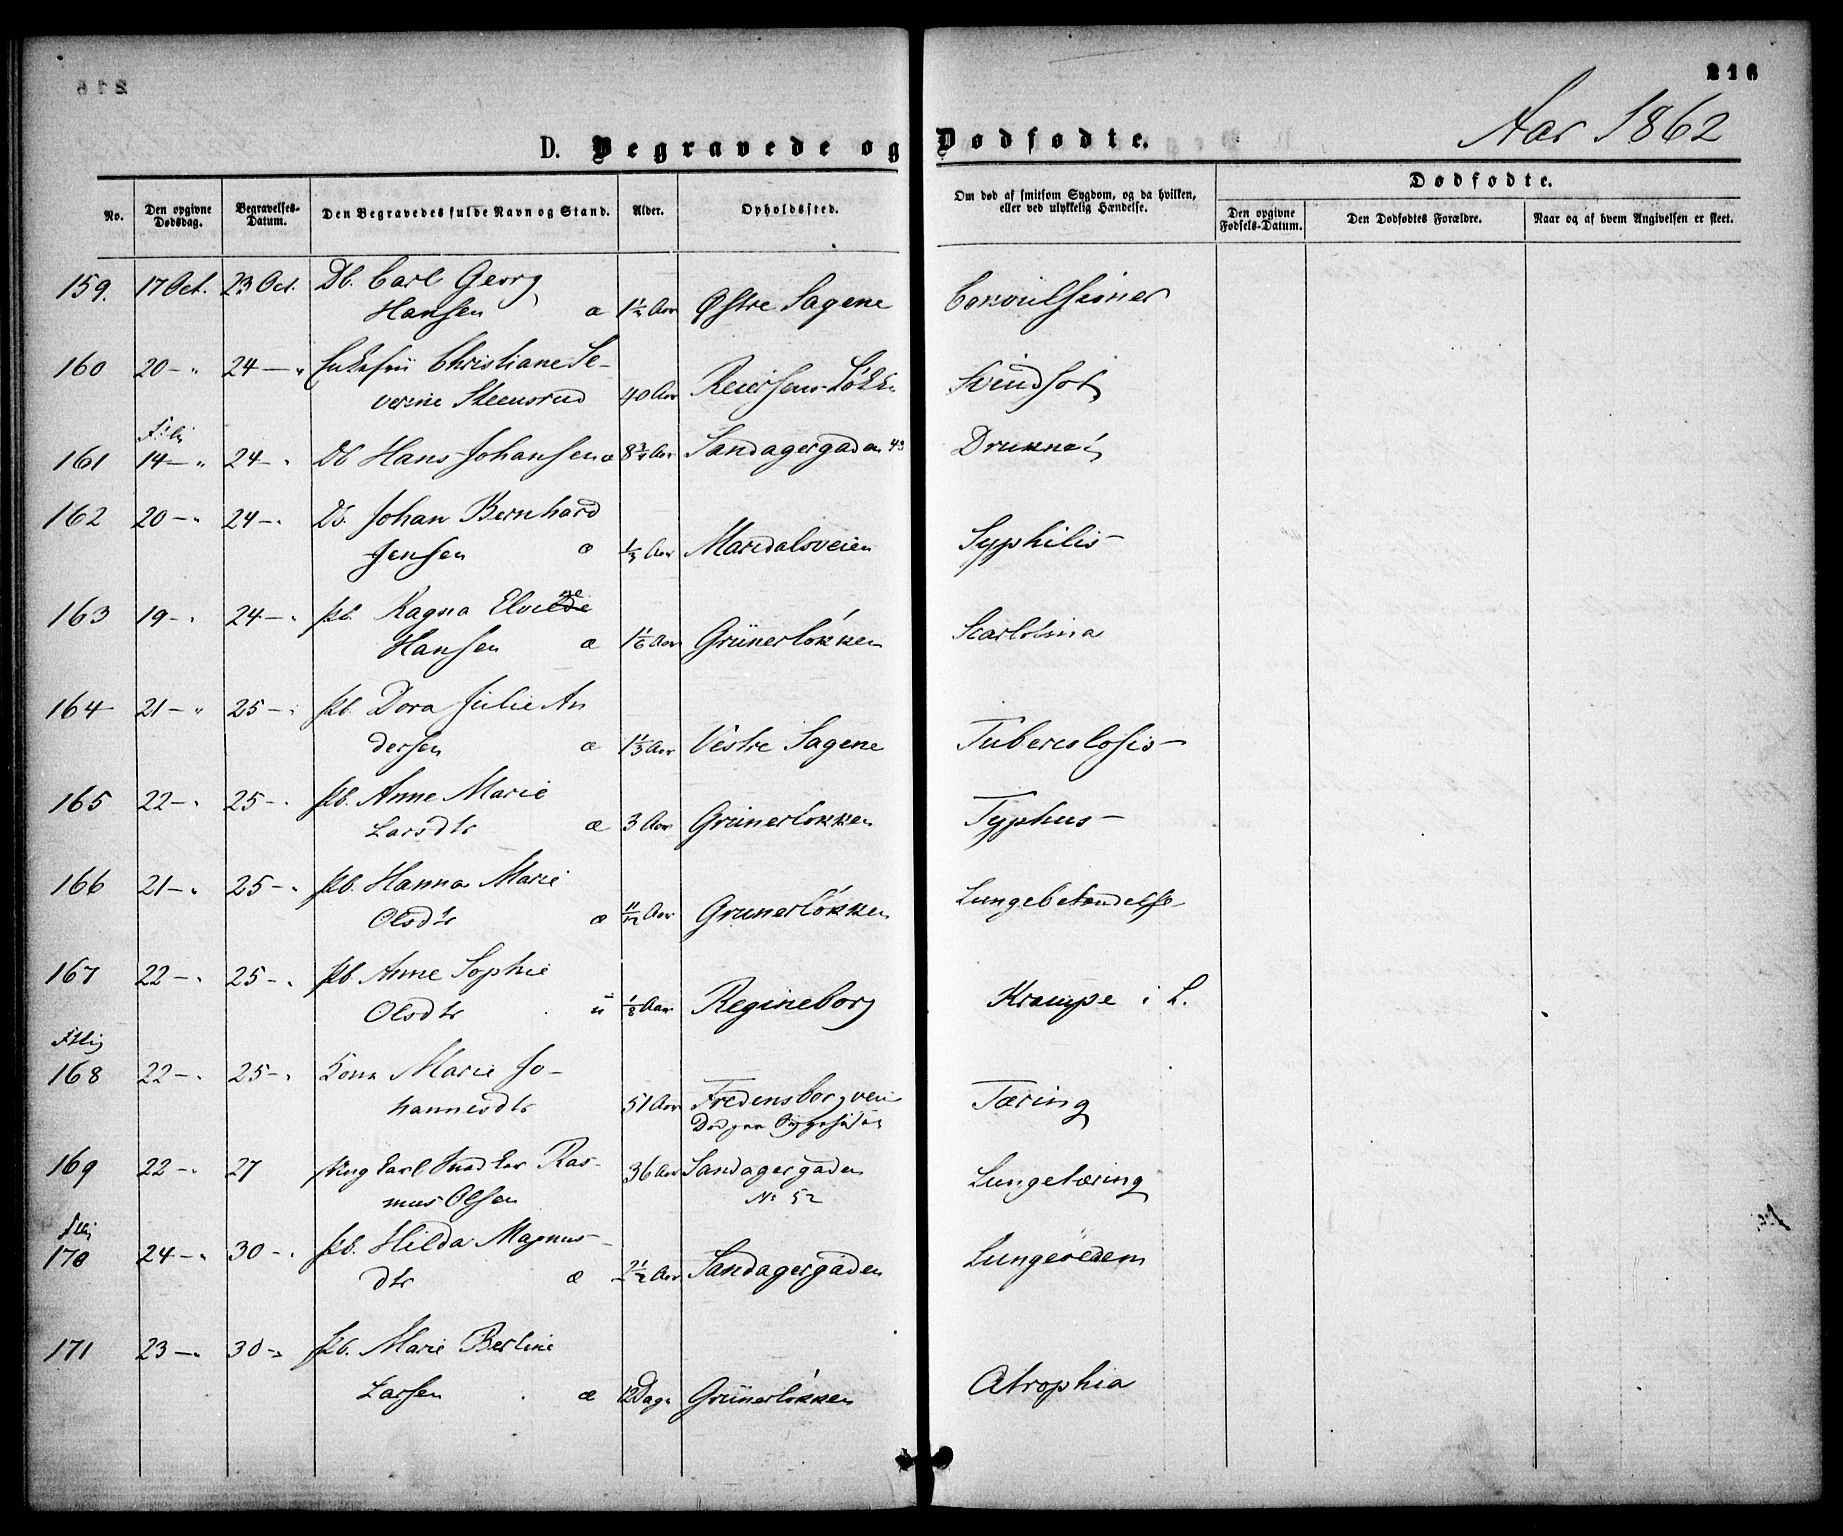 216
Aar 1862
D. Begravede og Dødfødte.
No.
Den opgivne Dødsdag.
Begravelses-Datum.
Den Begravedes fulde Navn og Stand.
Alder.
Opholdssted.
Om død af smitsom Sygdom, og da hvilken, eller ved ulykkelig Hændelse.
Dødfødte.
Den opgivne Fødsels-Datum.
Den Dødfødtes Forældre.
Naar og af hvem Angivelsen er skeet.
159. 17 Oct. 23 Oct. Db. Carl Georg
Hansen æ 1½ Aar Østre Sagene Convulsioner
160 20 — " 24 — " Christiane Se-
verine Steensrud 40 Aar Reiersens Løkke Svindsot
161 14 — " 24 — " Db Hans Johansen æ 8 3/4 Aar Sandagergaden 43 Druknet
162 20 — " 24 — " Db. Johan Bernhard
Jensen æ 1/3 Aar Maridalsveien Syphilis
163 19 — " 24 — " Pb. Ragna Elvine
Hansen æ 1 1/6 Aar Grünerløkken Scarlatina
164 21 — " 25 — " Pb. Dora Julie An
dersen æ 1 1/3 Aar Vestre Sagene Tuberculosis
165 22 — " 25 — " Pb. Anne Marie
Larsdtr æ 3 Aar Grünerløkken Typhus
166 21 — " 25 — " Pb. Hanna Marie
Olsdtr æ 11/12 Aar Grünerløkken Lungebetændelse
167 22 — " 25 — " Pb. Anne Sophie
Olsdtr u 1/8 Aar Regineborg Krampe i L.
168 22 — " 25 — " Kone Marie Jo-
hannesdtr 51 Aar Fredensborgvei Tæring
Død paa Sygehuset
169 22 — " 27 Ung Karl Ras-
mus Olsen 36 Aar Sandagergaden Lungetæring
No 52
170 24 — " 30 — " Pb. Hilda Magnus-
dtr æ 2½ Aar Sandagergaden Lungeødem
171 23 — " 30 — " Pb. Marie Bertine
Larsen æ 12 Dage Grünerløkken Atrophia